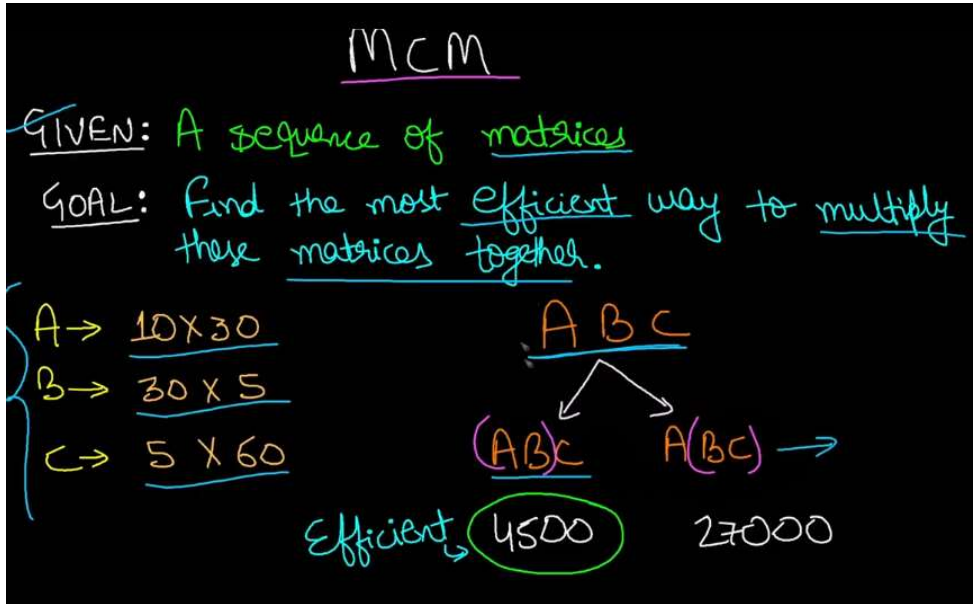 MCM
GIVEN: A sequence of matrices
GOAL: Find the most efficient way to multiply
these matrices together.
A→ 10X30
B→ 30 X 5
C→ 5 X 60
A B C
(AB)C A(BC) →
Efficient 4500 27000